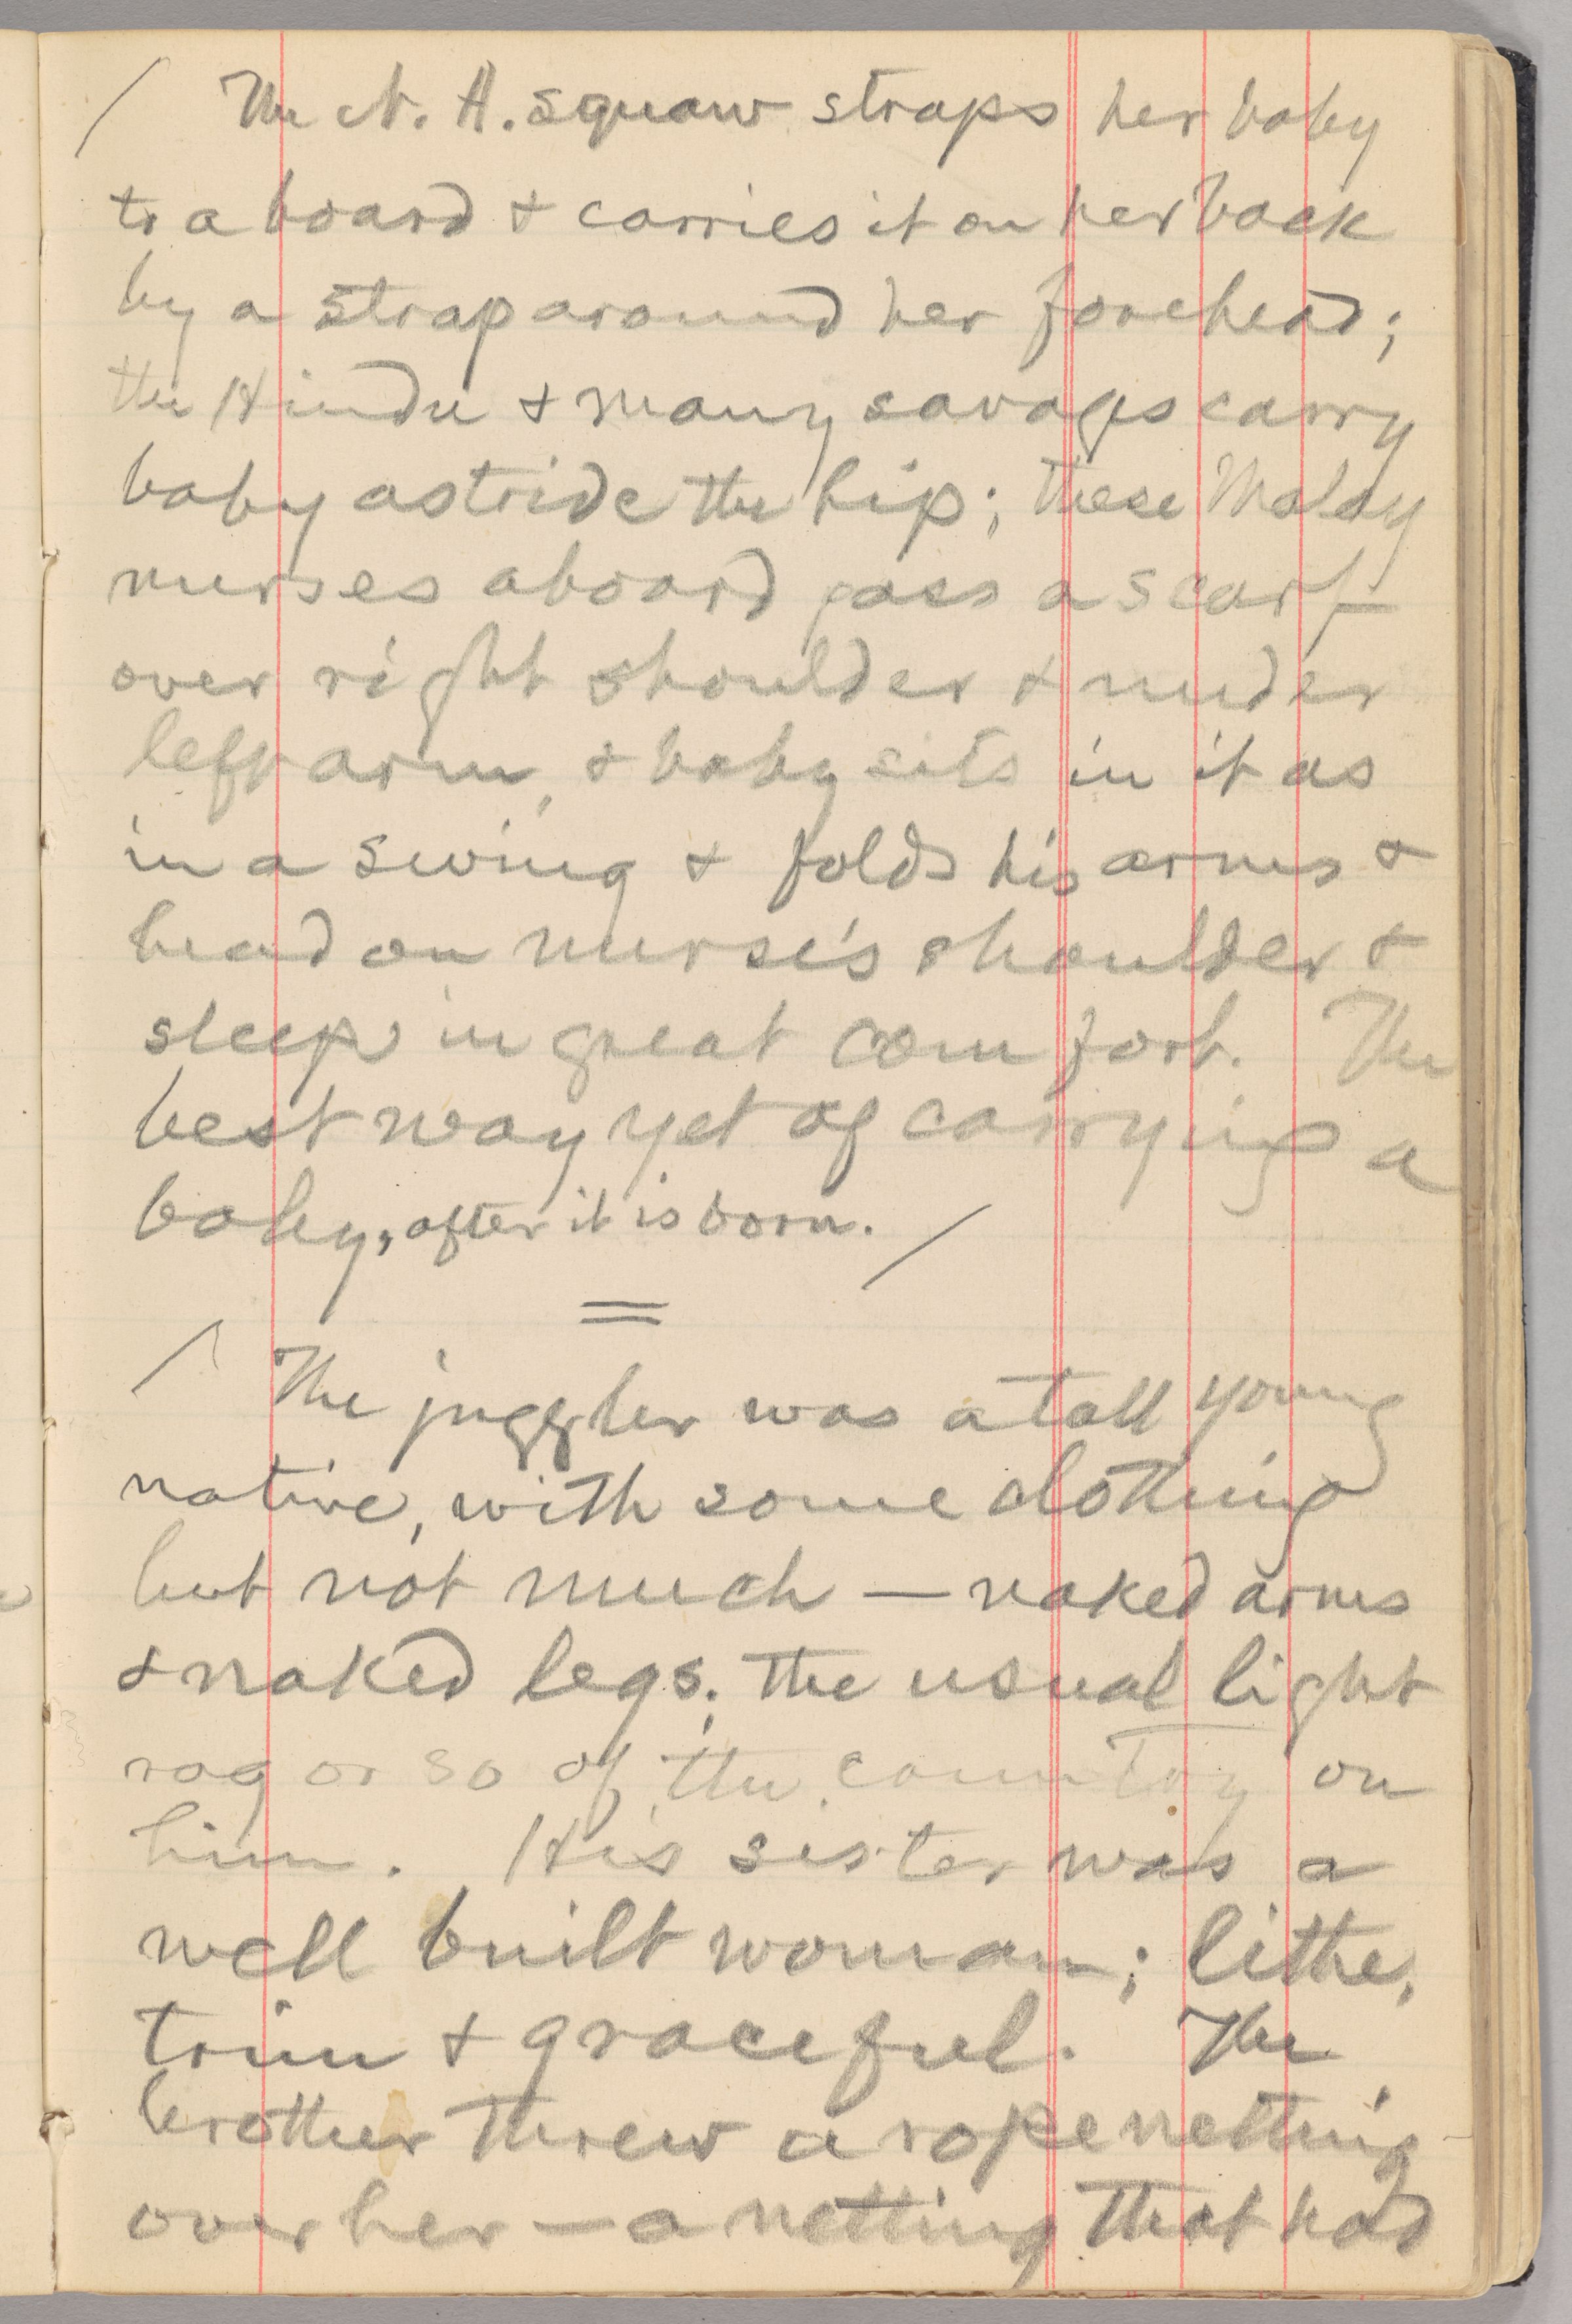 / The N. A. squaw straps her baby
to a board & carries it on her back
by a strap around her forehead;
the Hindu & many savages carry
baby astride the hip; these Malay
nurses aboard pass a scarf
over right shoulder & under
left arm, & baby sits in it as
in a swing & folds his arms &
head on nurse's shoulder &
sleeps in great comfort. The
best way yet of carrying a
baby, after it is born. /
=
/ The juggler was a tall young
native, with some clothing
but not much — naked arms
& naked legs. The usual light
rag or so of the country on
him. His sister was a
well built woman; lithe,
trim & graceful. The
brother threw a rope netting
over her — a netting that had